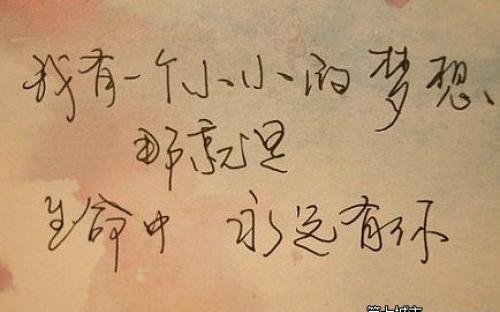 我有一个小小的梦想
那就是
生命中 永远有你
第七城市